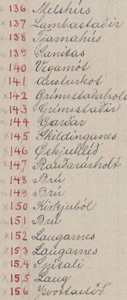 x 136 Melshús
x 137 Lambastaðir
x 138 Framahús
x 139 Sanitas
x 140 Vegamót
x 141 Austurkot
x 142 Grímsstaðaholt
x 143 Grímsstaðir
x 144 Garðar
x 145 Skildinganes
x 146
x 147 Rauðarárholt
x 148 Brú
x 149 Brú
x 150 Kirkjuból
x 151 Brú
x 152 Laugarnes
x 153 Laugarnes
x 154 Spítali
x 155 Laug
x 156